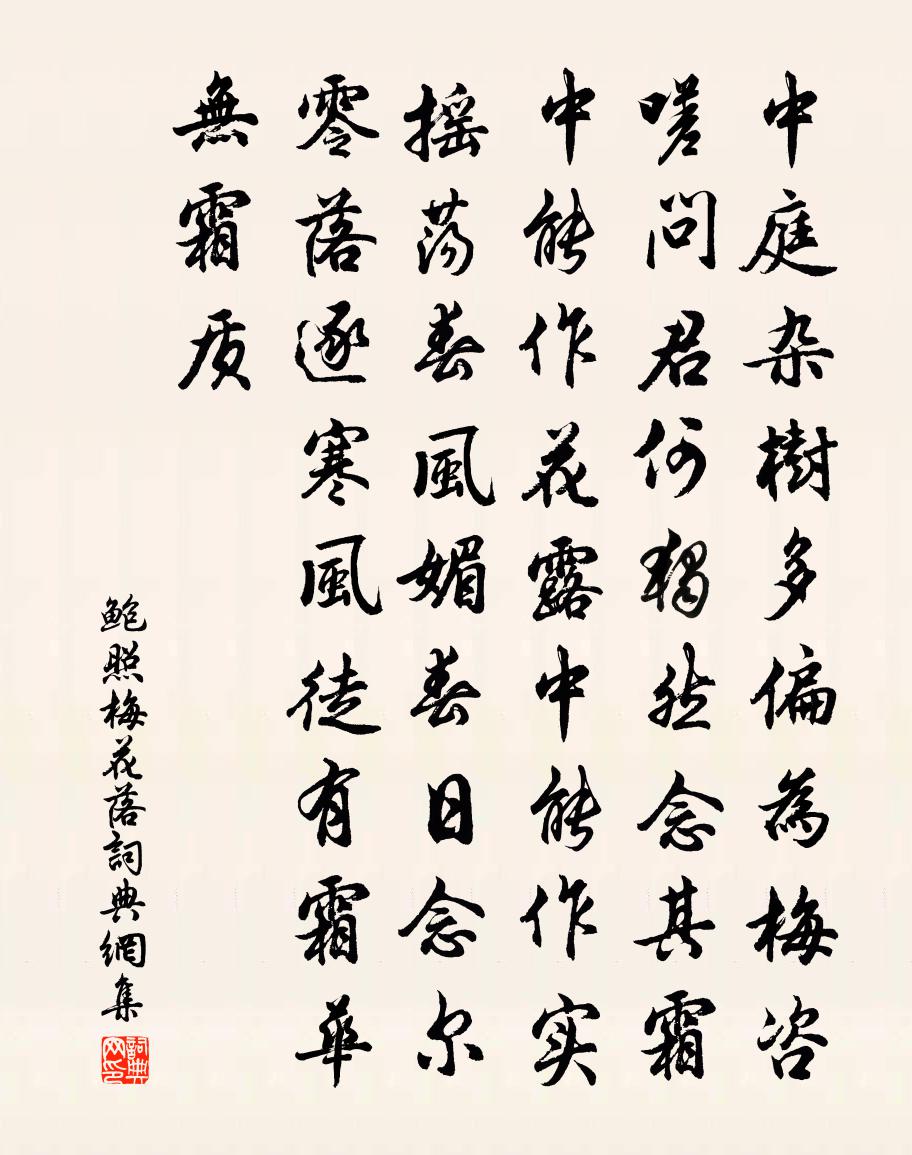 中庭杂樹多偏為梅咨
嗟問君何独然念其霜
中能作花露中能作实
摇荡春風媚春日念尔
零落逐寒風徒有霜華
無霜质
鲍照梅花落詞典網集
詞典网印